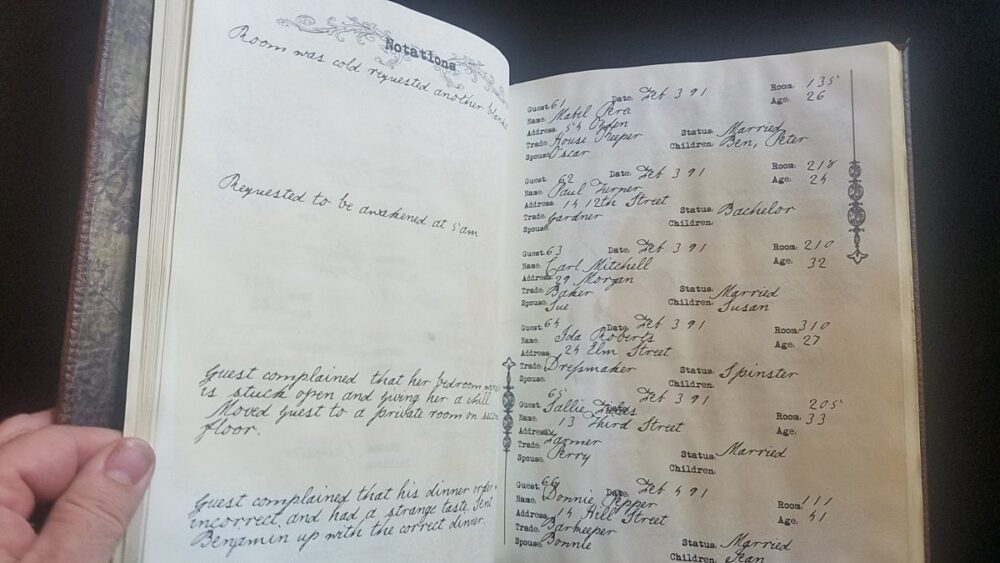 Notations
Room was cold requested another
Requested to be awakened at 5 am
Guest complained that her bedroom
is stuck open and giving her a chill.
Moved Guest to a private room on
floor.
Guest complained that his dinner order
incorrect, and had a strange taste. Sent
Benjamin up with the correct dinner.
Guest: 61 Date: Feb 3 91 Room: 135
Name: Mabel Age: 26
Address: 54
Trade: House Keeper Status: Married
Spouse: Oscar Children: Ben, Peter
Guest: 62 Date: Feb 3 91 Room: 218
Name: Paul Turner Age: 24
Address: 14 12th Street
Trade: Gardner Status: Bachelor
Spouse: Children:
Guest: 63 Date: Feb 3 91 Room: 210
Name: Carl Mitchell Age: 32
Address: 29 Morgan
Trade: Baker Status: Married
Spouse: Sue Children: Susan
Guest: 64 Date: Feb 3 91 Room: 310
Name: Ida Roberts Age: 27
Address: 24 Elm Street
Trade: Dressmaker Status: Spinster
Spouse: Children:
Guest: 65 Date: Feb 3 91 Room: 205
Name: Sallie Age: 33
Address: 13 Third Street
Trade: Farmer Status: Married
Spouse: Perry Children:
Guest: 66 Date: Feb 4 91 Room: 111
Name: Donnie Pepper Age: 41
Address: 14 Hill Street
Trade: Barkeeper Status: Married
Spouse: Bonnie Children: Jean